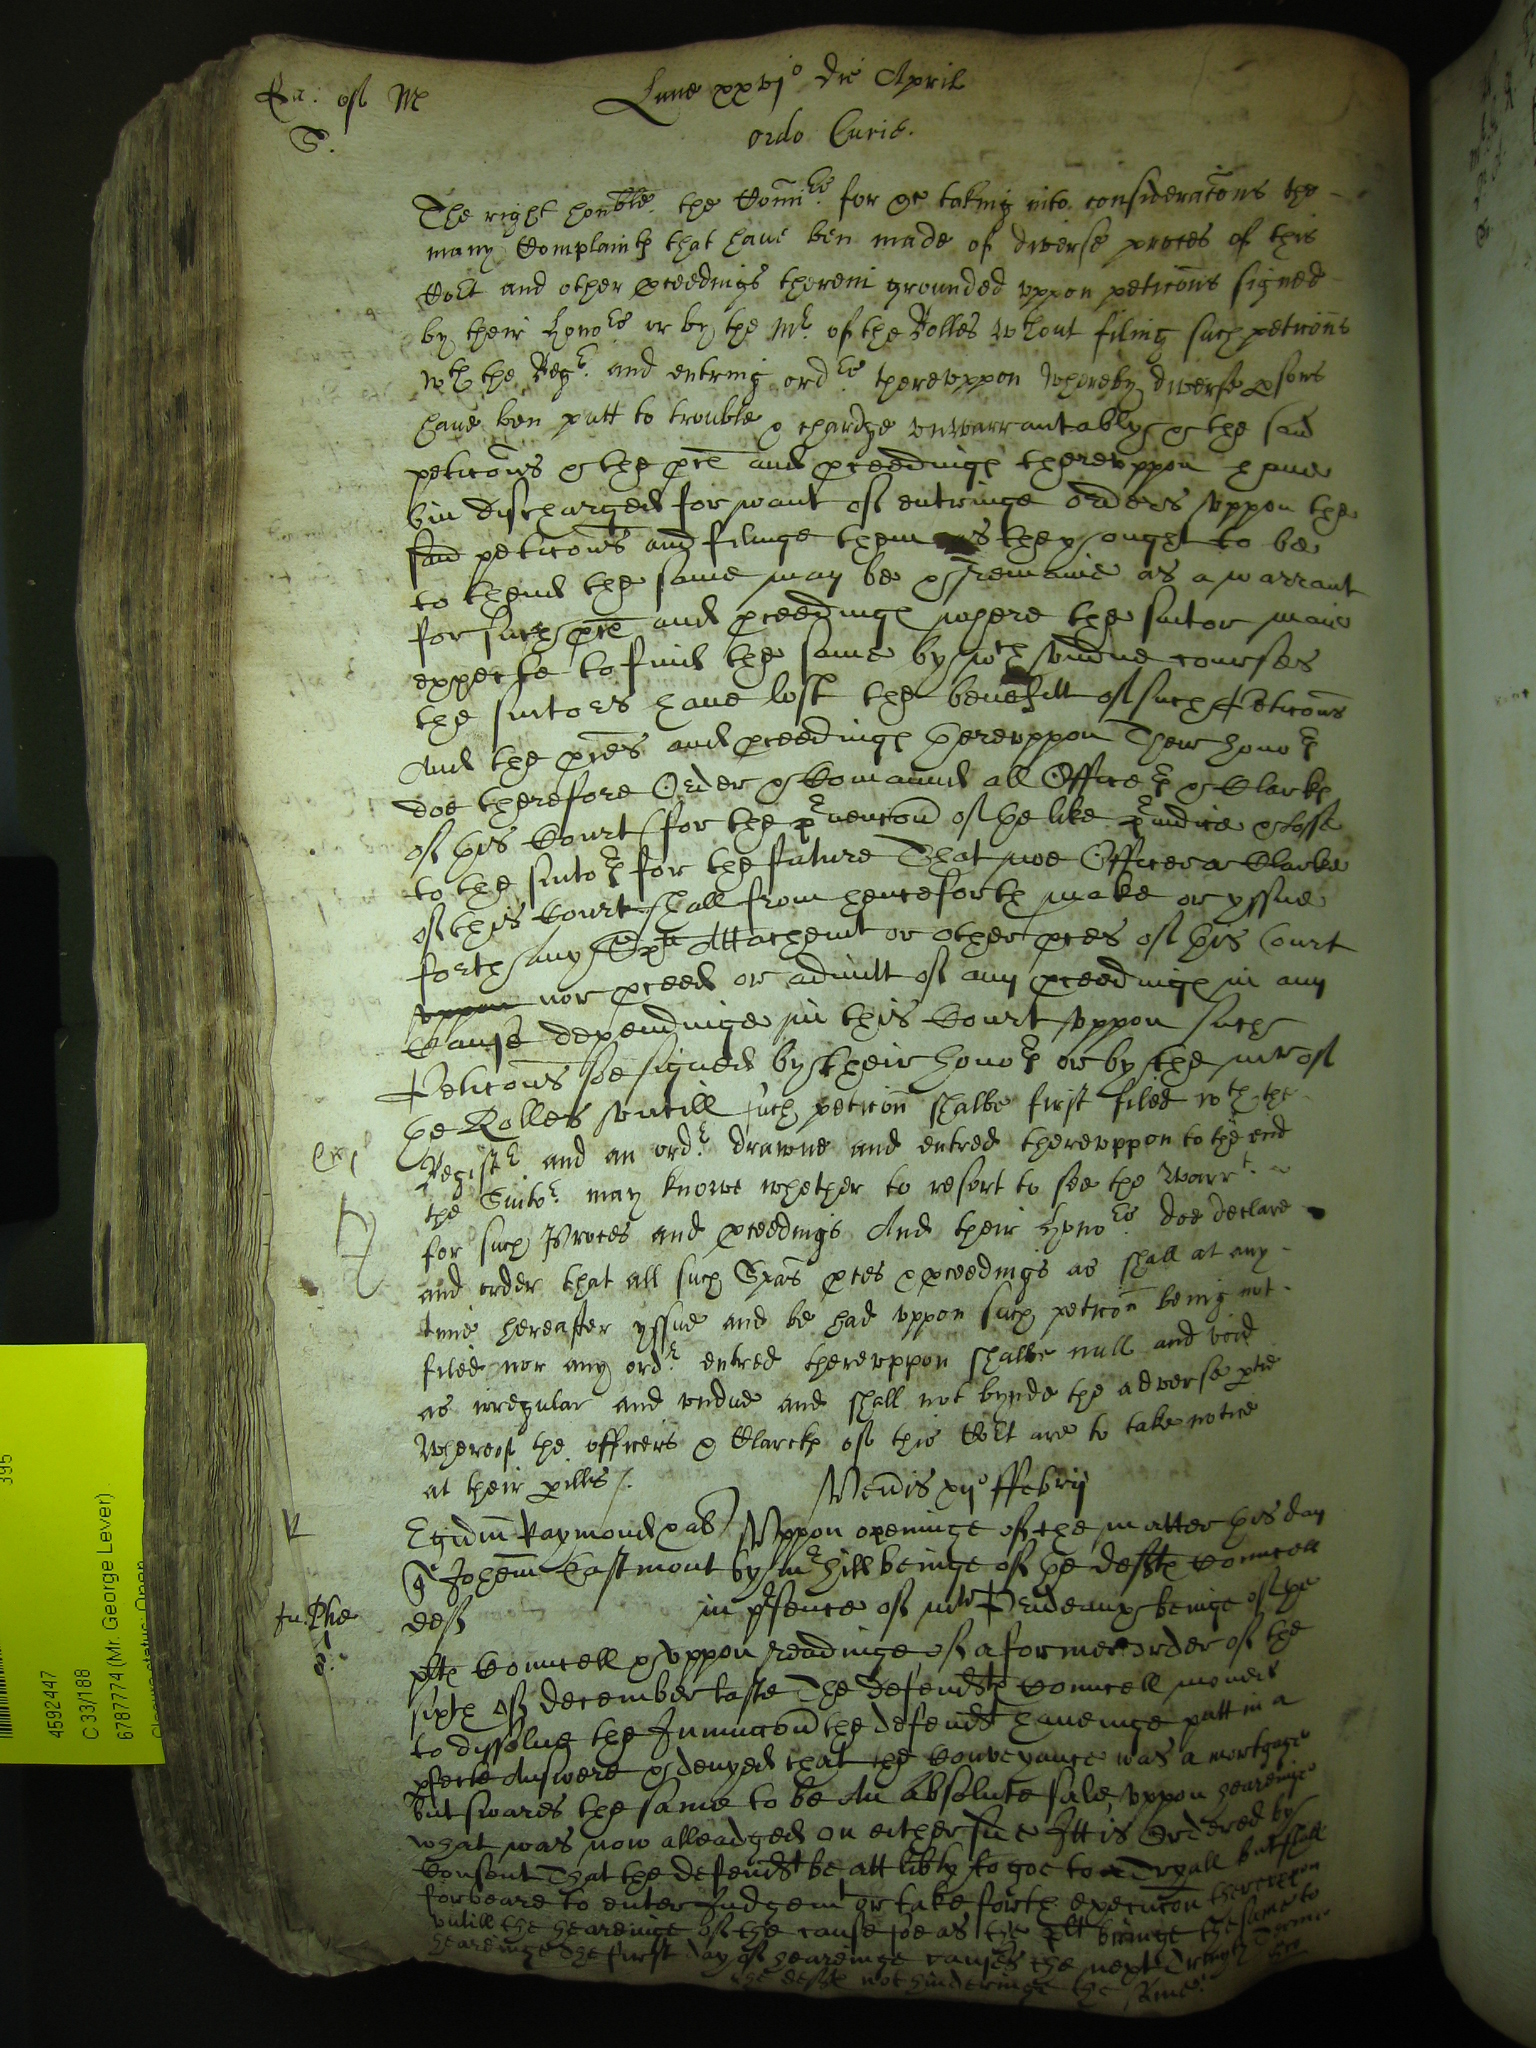 Lune xxvj° die April
Ordo Curie.
The right honble. the Comrs. for &c taking into consideracons the
many Complaints that have ben made of diverse proces of this
Court and other pceedings therein grounded uppon peticons signed
by their Honors or by the Mr. of the Rolles wthout filing such peticions
wth the Regr. and entring ordrs. thereuppon whereby diverse psons
have ben putt to trouble & chardge unwarrantably & the said
peticons & the pces and pceedings thereuppon have
bin discharged for want of entringe orders uppon the
said peticons and filinge them as they ought to be
to thend the same may be & remaine as a warrant
for such pces and pceedings where the suitor maie
expecte to find the same by wch undue courses
the suitors have lost the benefitt of such Peticons
And the pces and pceedings thereuppon Their honors
doe therefore Order & Comaund all Officers & Clarks
of this Court (for the pvencon of the like pjudice & losse
to the suitors for the future That noe Officer or Clarke
of this Court shall from henceforth make or yssue
forth any Spa Attachemt or other pces of this Court
uppon nor pceed or admitt of any pceedings in any
Cause dependinge in this Court uppon such
Peticons soe signed by their honors or by the mr of
the Rolles untill such peticon shalbe first filed wth the
Registr and an ordr. drawne and entred thereuppon to the end
the Suitor may knowe whether to resort to see the Warrt.
for such Proces and pceedings And their Honors. doe declare
and order that all such Spas pces & pceedings as shall at any
time hereafter yssue and be had uppon such peticon being not
filed nor any ordr. entred thereuppon shalbe null and void
as irregular and undue and shall not bynde the adverse ptie
Whereof the officers & Clarcks of this Court are to take notice
at their pills /.
Ven'is xij° ffebrij
Egidiu Raymond quer
Uppon openinge of the matter this day
Johem Eastmont
by mr Hill beinge of the defts Councell
deft
in psence of mr Prideaux beinge of the
plts Councell & uppon readinge of a former order of the
sixth of December laste The defendts Councell moved
to dyssolve the Iniunccon the defendt haveinge putt in a
pfecte Answere & denyed that the Conveyance was a mortgage
but swares the same to be An absolute sale, uppon heareinge
what was now alleadged on either side Itt is Ordered by
Consent That the defendt be att libty to goe to a Tryall but shall
forbeare to enter Judgemt or take forth execucon thereuppon
untill the heareinge of the cause soe as the plt bringe the same to
heareinge the first day of heareinge causes the next Trinity Terme
the defts not hinderinge the same.
4592447
C 33/188
6787774 (Mr. George Lever)
395